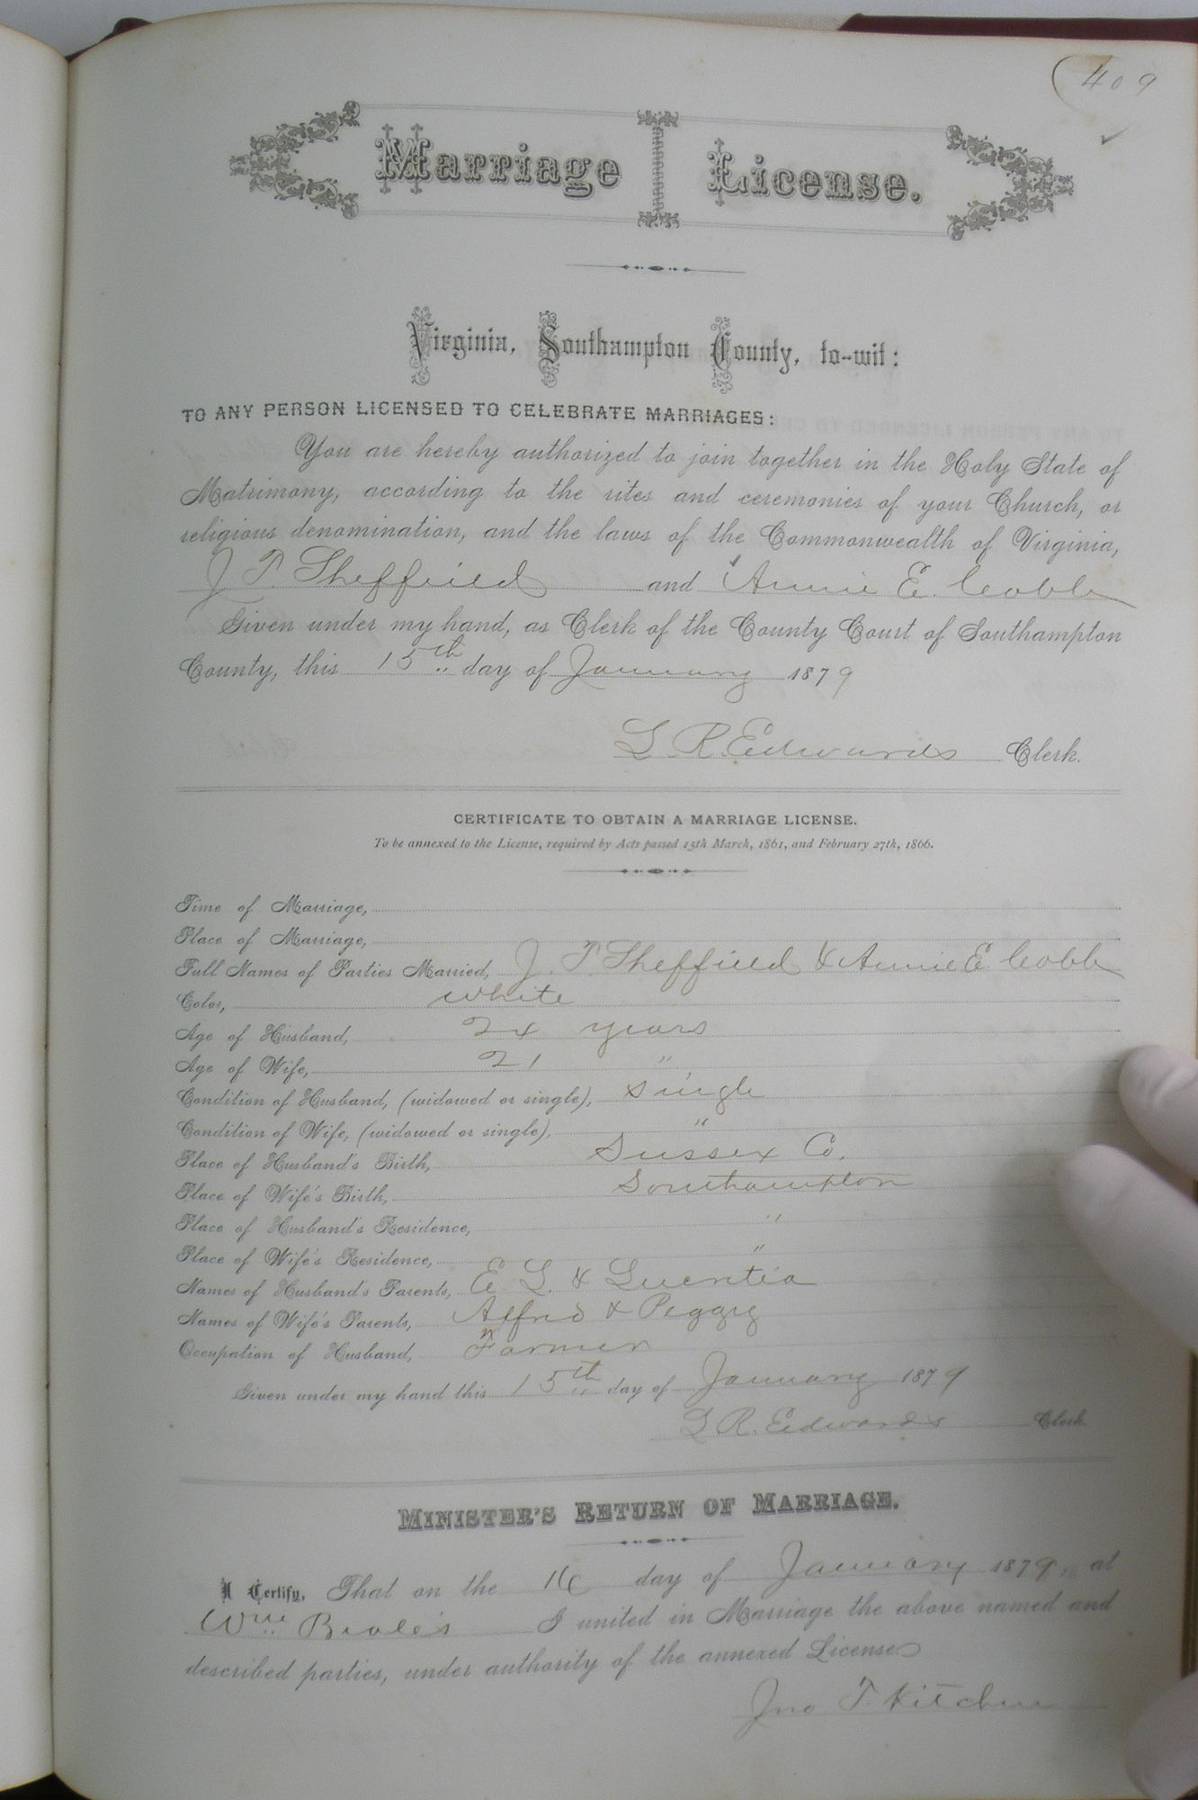 409
Marriage License.
Virginia, Southampton County, to-wit:
TO ANY PERSON LICENSED TO CELEBRATE MARRIAGES:
You are hereby authorized to join together in the Holy State of
Matrimony, according to the rites and ceremonies of your Church, or
religious denomination, and the laws of the Commonwealth of Virginia,
J. T. Sheffield and Annie E. Cobb
Given under my hand, as Clerk of the County Court of Southampton
County, this 15th day of January 1879
L R. Edwards Clerk.
CERTIFICATE TO OBTAIN A MARRIAGE LICENSE.
To be annexed to the License, required by Acts passed 15th March, 1861, and February 27th, 1866.
Time of Marriage,
Place of Marriage,
Full Names of Parties Married, J. T. Sheffield & Annie E Cobb
Color, White
Age of Husband, 24 years
Age of Wife, 21 "
Condition of Husband, (widowed or single), Single
Condition of Wife, (widowed or single), "
Place of Husband's Birth, Sussex Co.
Place of Wife's Birth, Southampton
Place of Husband's Residence, "
Place of Wife's Residence, "
Names of Husband's Parents, E. L. & Lucretia
Names of Wife's Parents, Alfred & Peggy
Occupation of Husband, Farmer
Given under my hand this 15th day of January 1879
L R. Edwards Clerk.
MINISTER'S RETURN OF MARRIAGE.
I Certify, That on the 16 day of January 1879, at
Wm Beale's I united in Marriage the above named and
described parties, under authority of the annexed License
Jno T. Kitchen